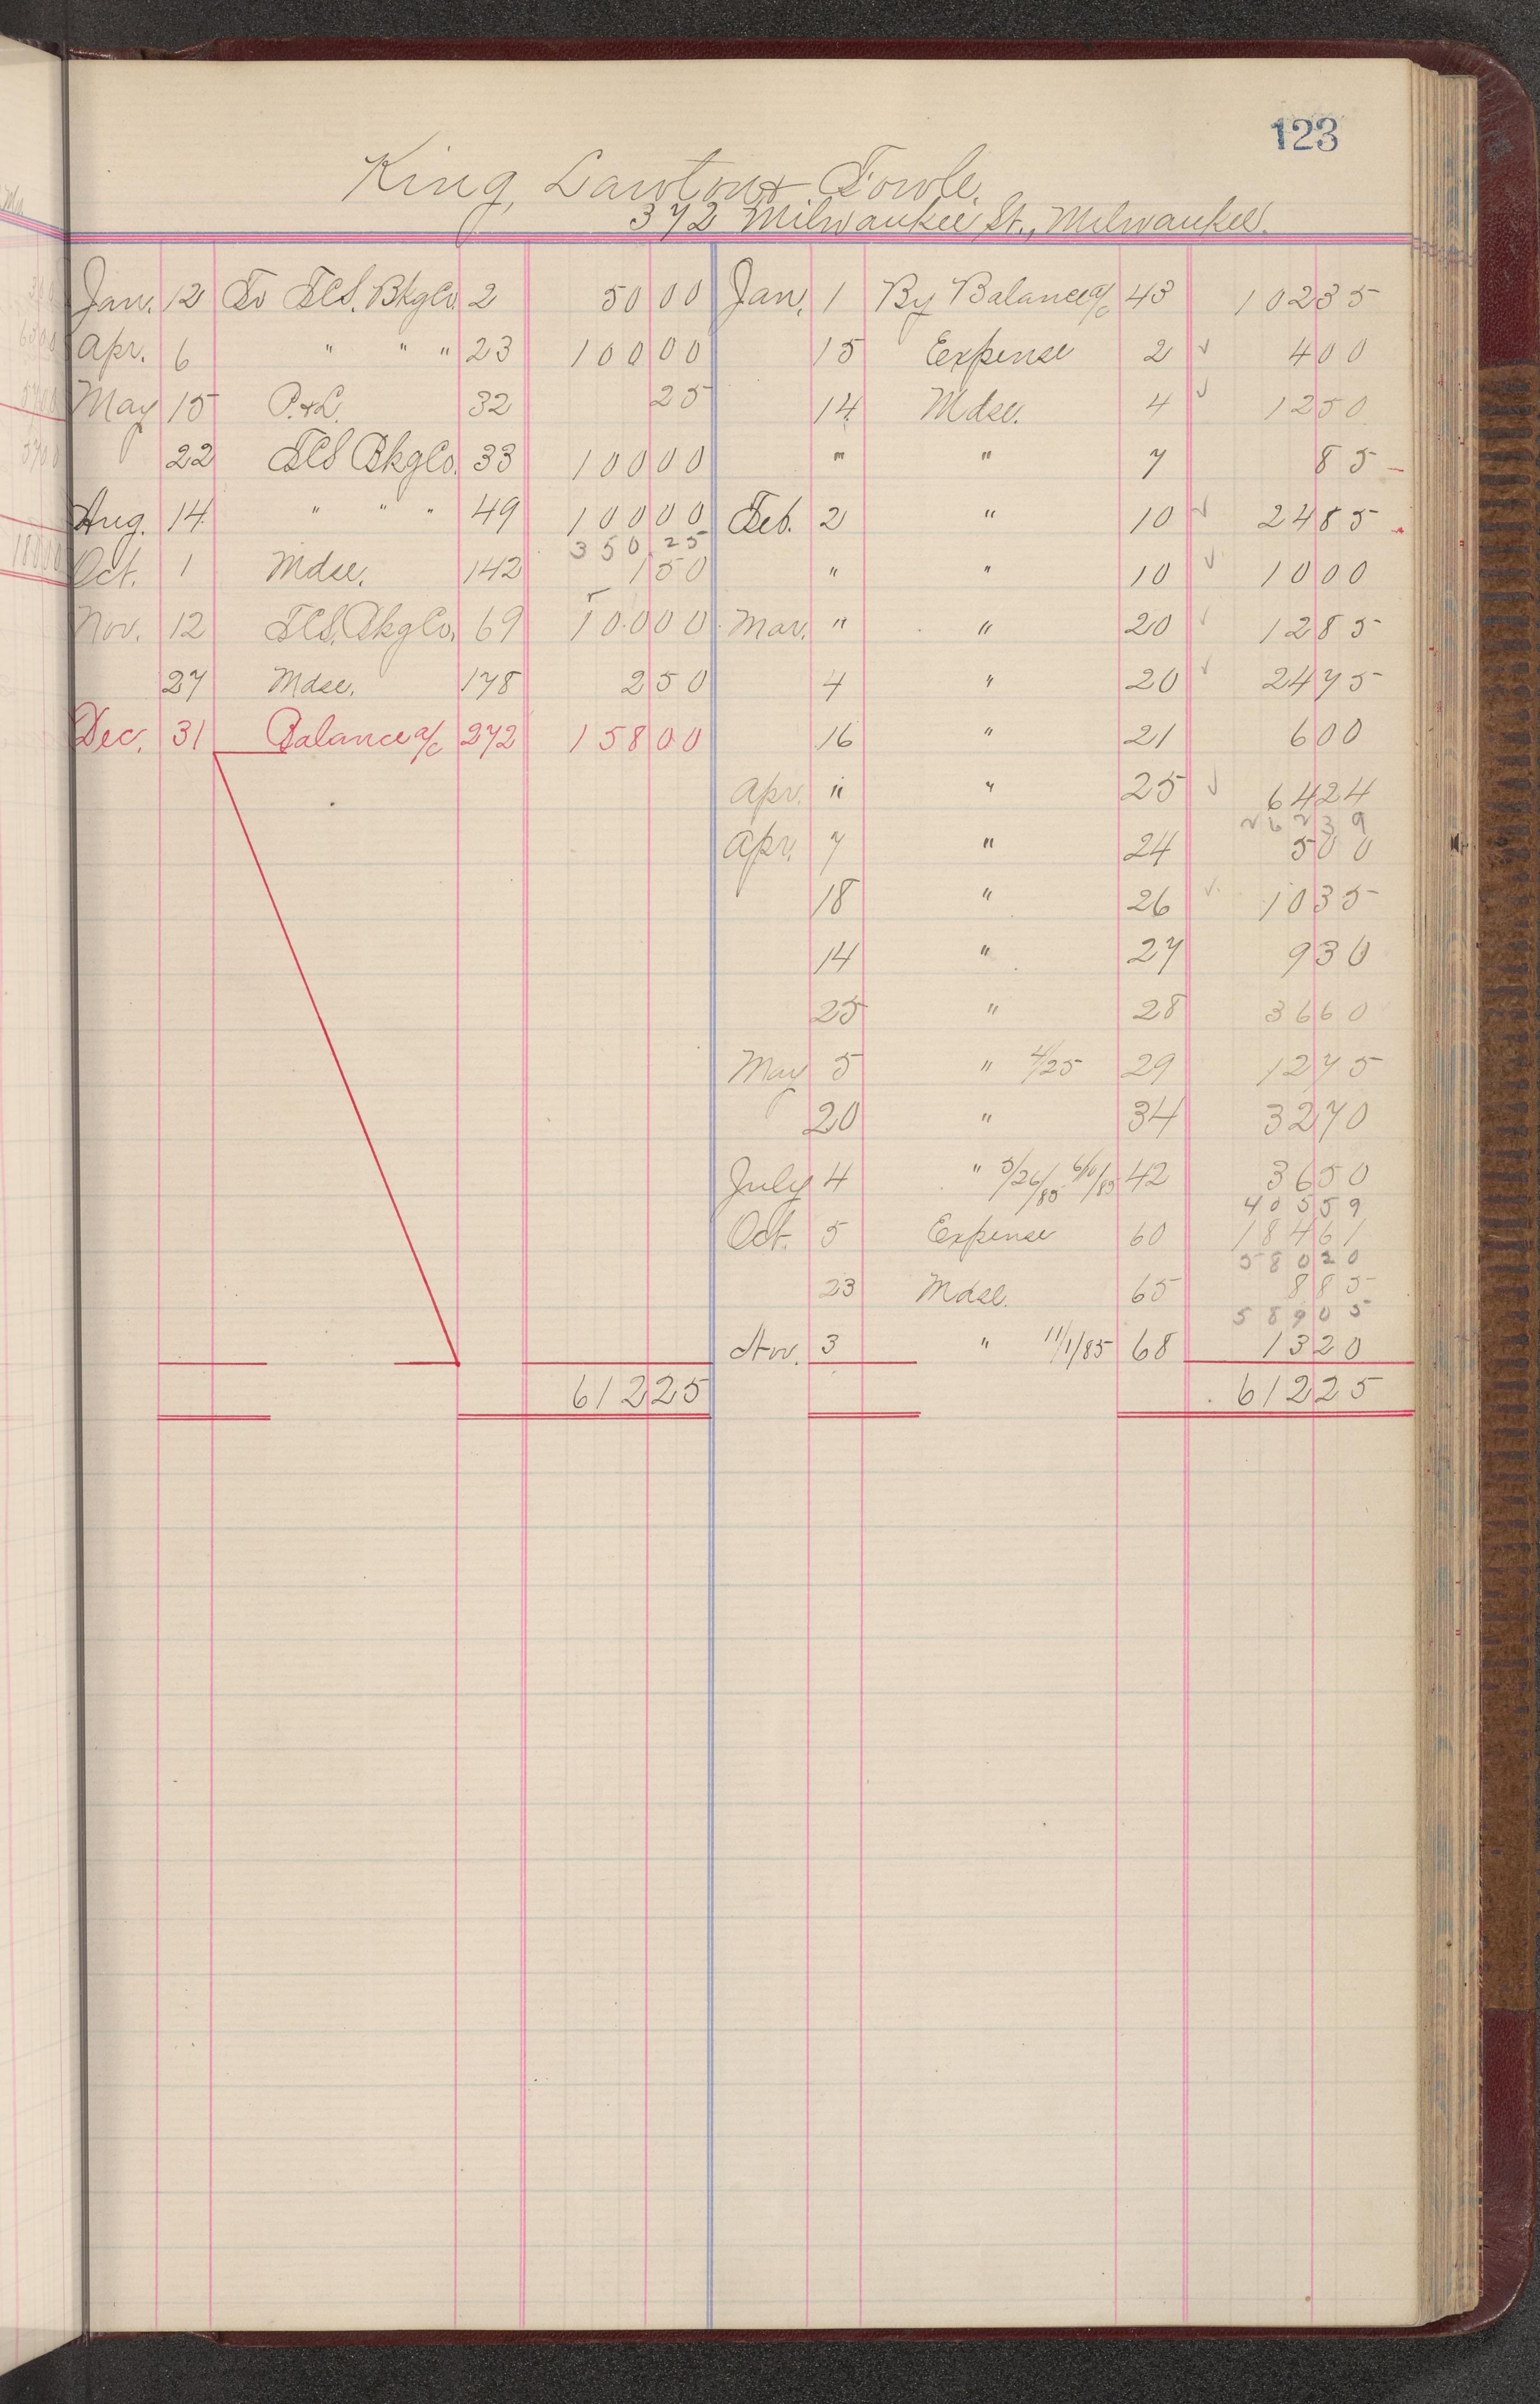 123
King, Lawton & Fowle.
372 Milwaukee St., Milwaukee.
Jan. 12 To F.C.S. Bkg Co. 2 50 00 Jan. 1 By Balance a/c 43 102 35
Apr. 6 " " " 23 100 00 15 Expense 2 ✓ 4 00
May 15 P. & L. 32 25 14 Mdse. 4 ✓ 12 50
22 F.C.S. Bkg Co. 33 100 00 " " 7 85
Aug. 14 " " " 49 100 00 Feb. 2 " 10 ✓ 24 85
350.25
Oct. 1 Mdse. 142 1 50 " " 10 ✓ 10 00
Nov. 12 F.C.S. Bkg Co. 69 100 00 Mar. " " 20 ✓ 12 85
27 Mdse. 178 2 50 4 " 20 ✓ 24 75
Dec. 31 Balance a/c 272 158 00 16 " 21 6 00
Apr. " " 25 ✓ 64 24
262 39
Apr. 7 " 24 5 00
18 " 26 ✓ 10 35
14 " 27 9 30
25 " 28 36 60
May 5 " 4/25 29 12 75
20 " 34 32 70
July 4 " 5/26/85 6/10/85 42 36 50
405 59
Oct. 5 Expense 60 184 61
580 20
23 Mdse. 65 8 85
589 05
Nov. 3 " 11/1/85 68 13 20
612 25 612 25